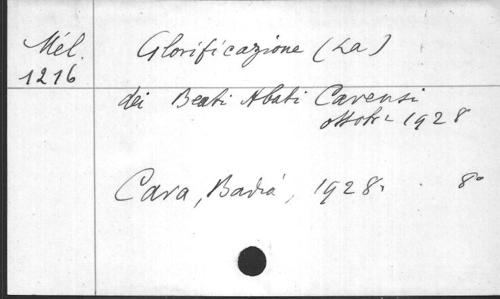 Mél.
1216
Glorificazione (La)
dei Beati Abati Cavensi
ottobre 1928
Cava, Badia, 1928. 8°